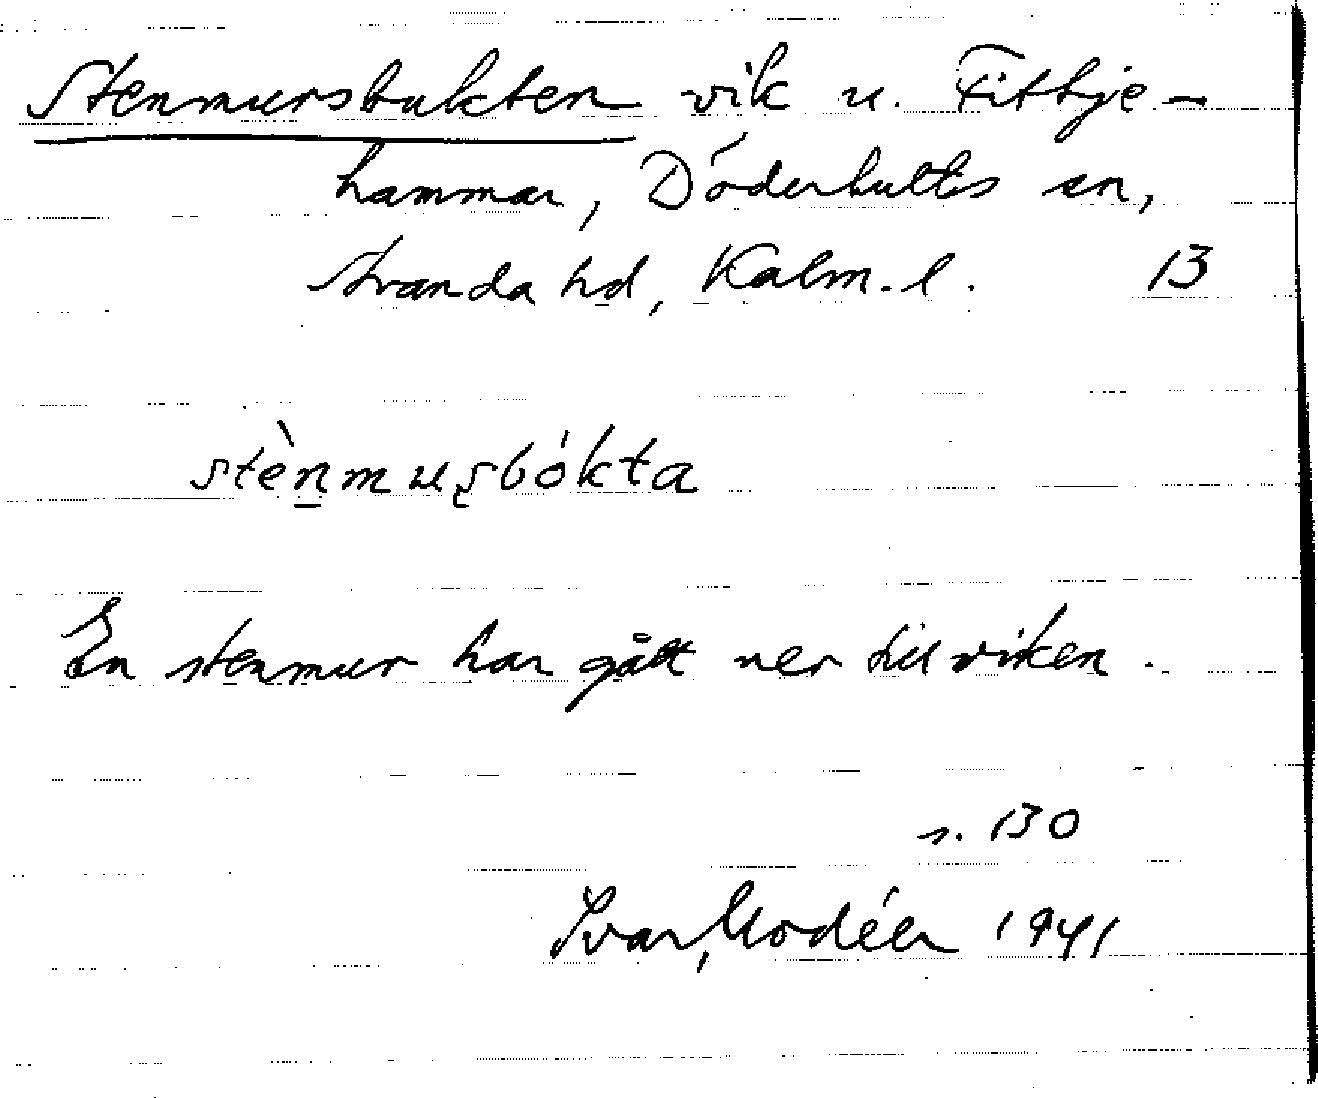 Stenmursbukten vik u. Fittje-
hammar, Döderhults sn,
Stranda hd, Kalm. l. 13
stènmuʂbókta
En stenmur har gått ner till viken.
s. 130
Ivar Modéer 1941